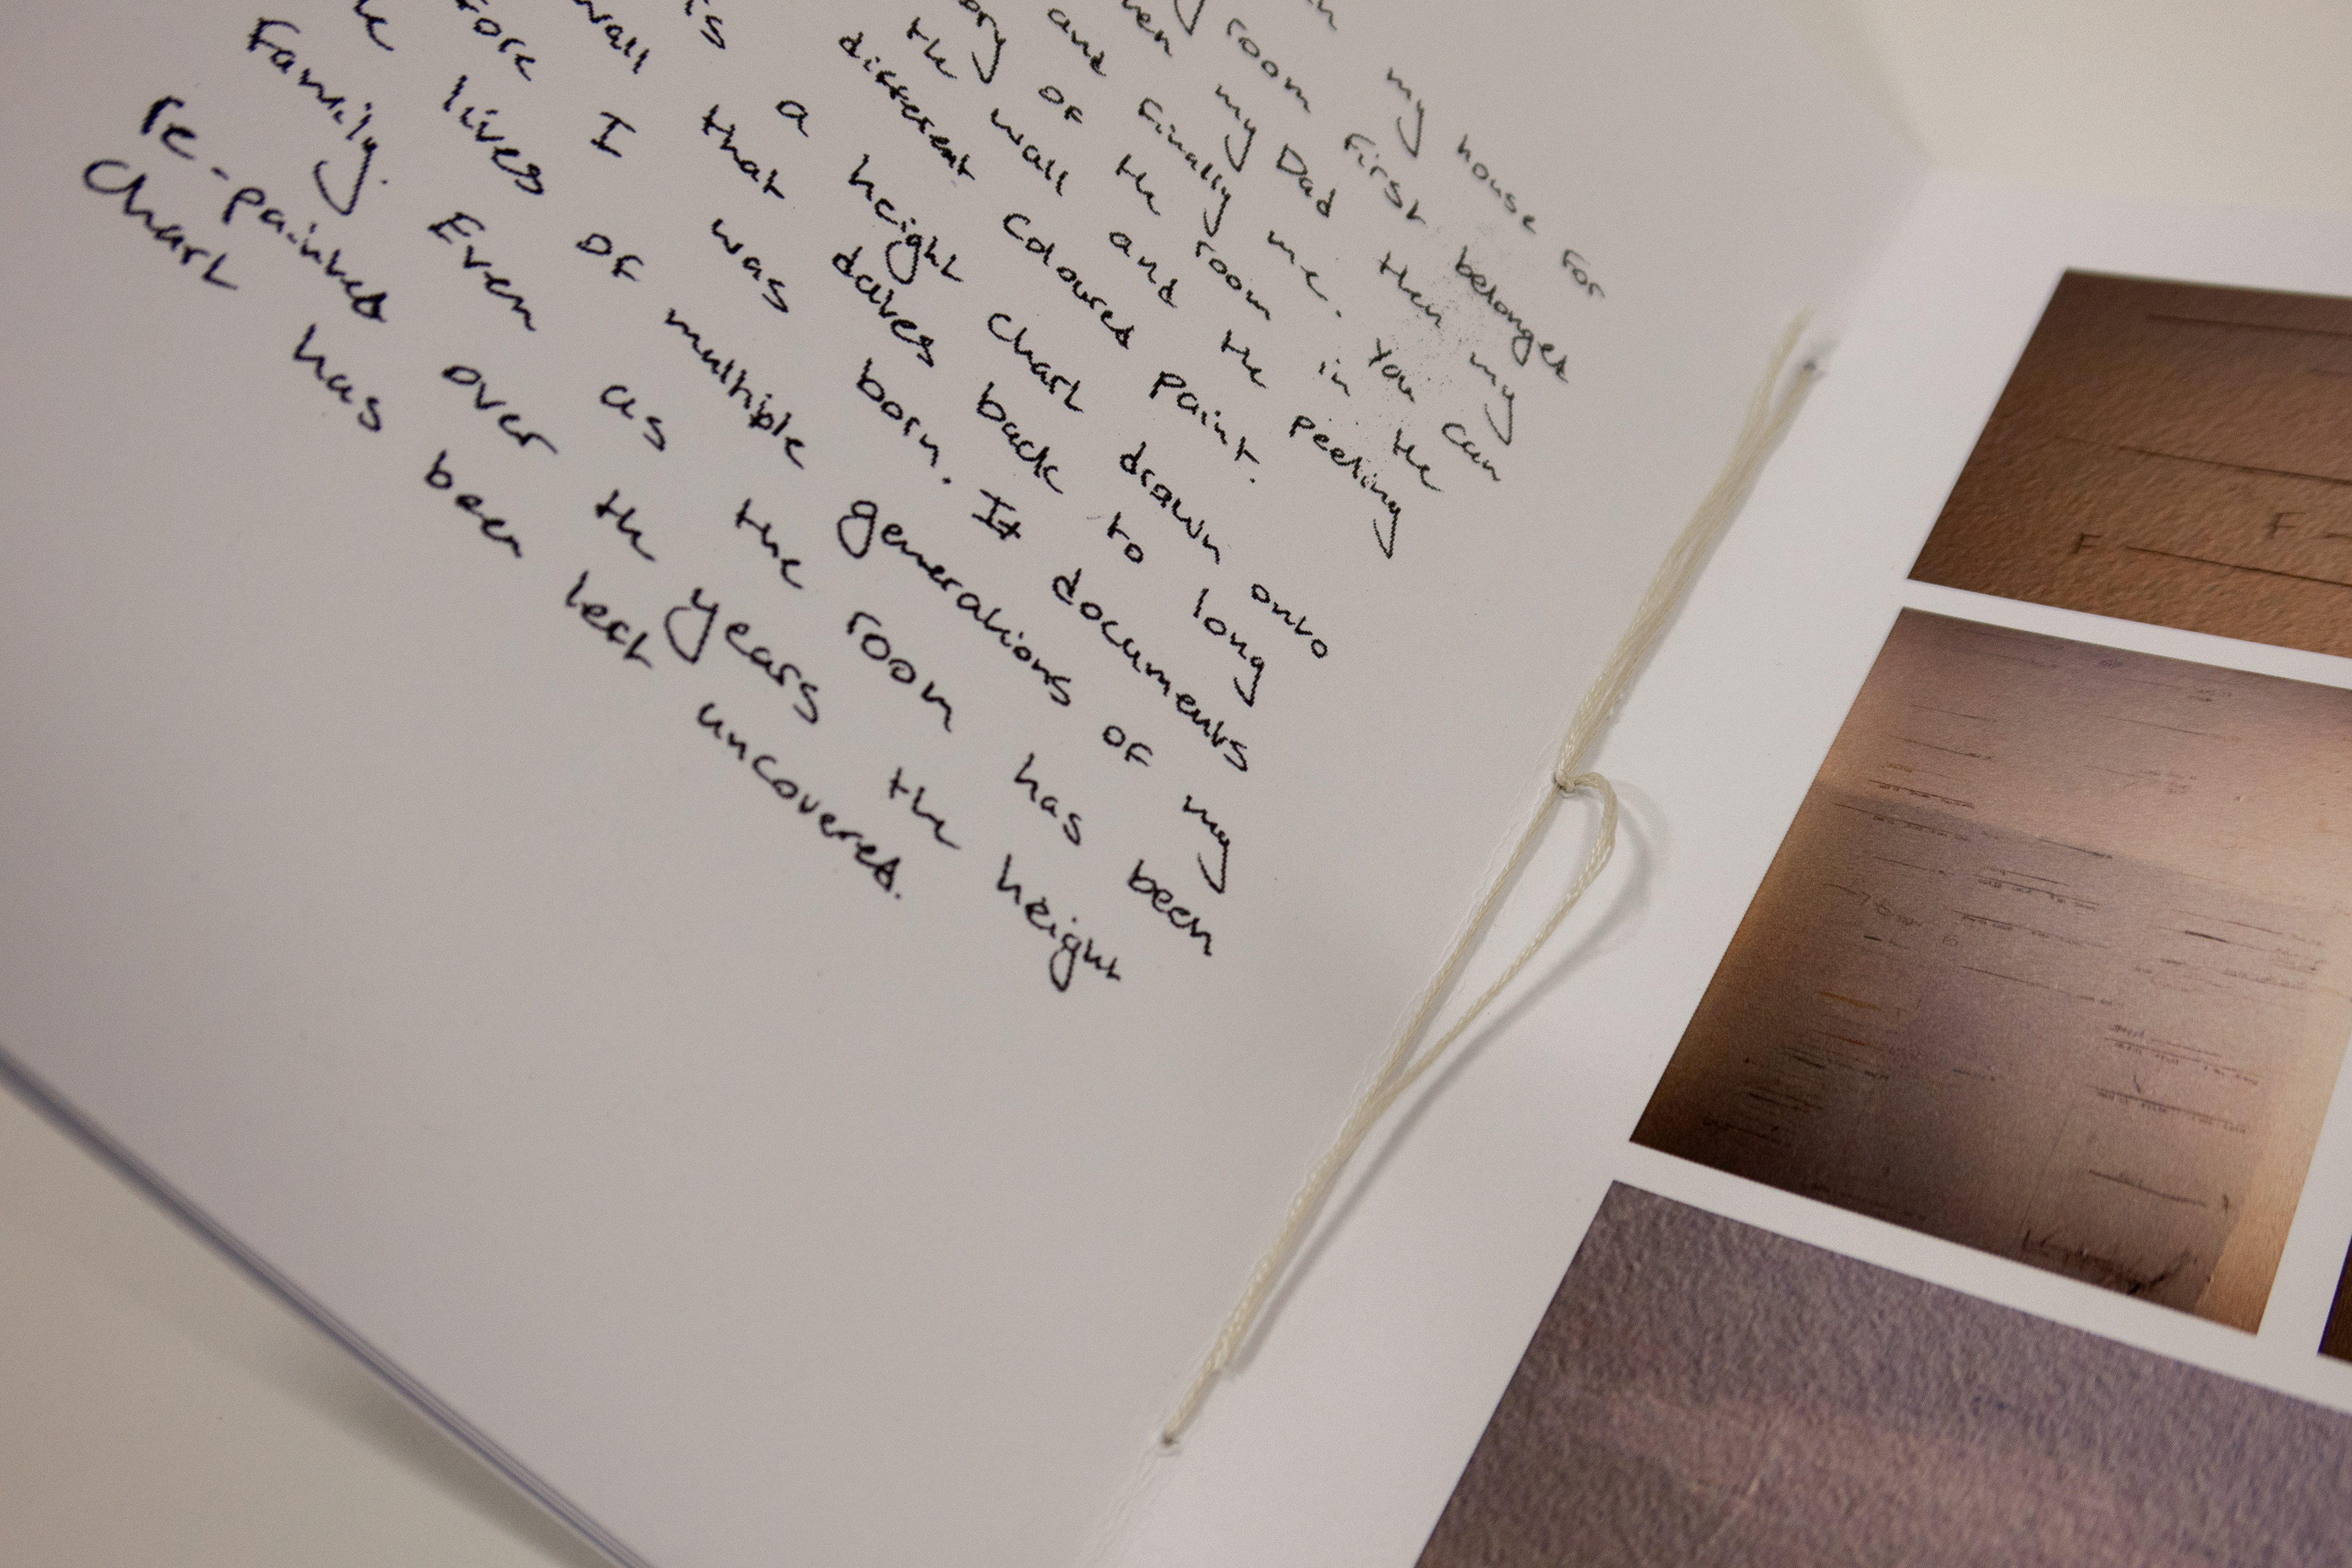 my house for
room first belonged
my Dad then my
and finally me. You can
of the room in the
the wall and the peeling
different coloured paint.
is a height chart drawn onto
wall that dates back to long
I was born. It documents
lives of multiple generations of my
Family. Even as the room has been
re-painted over the years the height
Chart has been left uncovered.
F
F